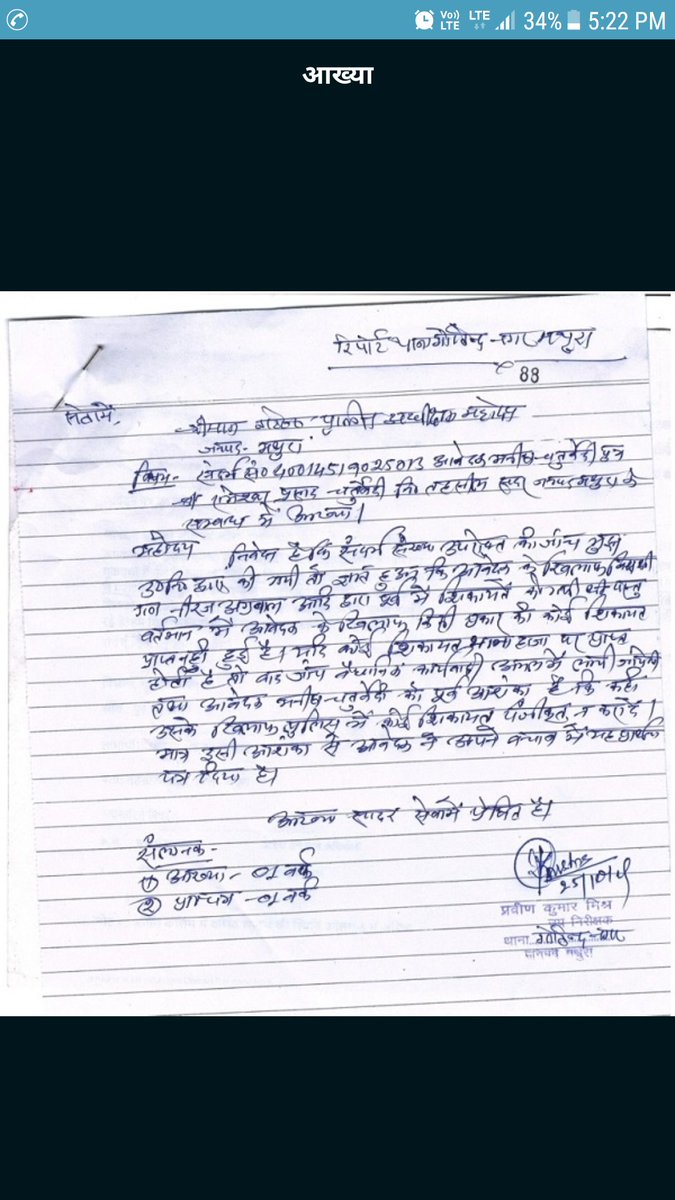 Vo) LTE LTE 34% 5:22 PM
आख्या
रिपोर्ट थाना गोविन्द नगर मथुरा
88
सेवामें,
श्रीमान वरिष्ठ पुलिस अधीक्षक महोदय
जनपद मथुरा
विषय- संदर्भ सं0 40014519025013 आवेदक मनीष चतुर्वेदी पुत्र
श्री प्रसाद चतुर्वेदी नि0 तहसील सदर जनपद मथुरा के
सम्बन्ध में आख्या।
महोदय निवेदन है कि संदर्भ संख्या उपरोक्त की जांच मुझ
उ0नि0 द्वारा की गयी तो ज्ञात हुआ कि आवेदक के खिलाफ विपक्षी
गण नीरज अग्रवाल आदि द्वारा पूर्व में शिकायतें की गयी थी परन्तु
वर्तमान में आवेदक के खिलाफ किसी प्रकार की कोई शिकायत
प्राप्त नही हुई है। यदि कोई शिकायत थाना हाजा पर प्राप्त
होती है तो बाद जांच वैधानिक कार्यवाही अमल में लायी जायेगी
आवेदक मनीष चतुर्वेदी को पूर्व आशंका है कि कहीं
उसके खिलाफ पुलिस में कोई शिकायत पंजीकृत न करा दे।
मात्र इसी आशंका से आवेदक ने अपने बचाव में यह प्रार्थना
पत्र दिया है।
आख्या सादर सेवामें प्रेषित है।
संलग्नक-
1) आख्या - 01 वर्क
2) प्रा0 पत्र - 01 वर्क
25/10/
प्रवीण कुमार मिश्र
उप निरीक्षक
थाना गोविन्द नगर
जनपद मथुरा